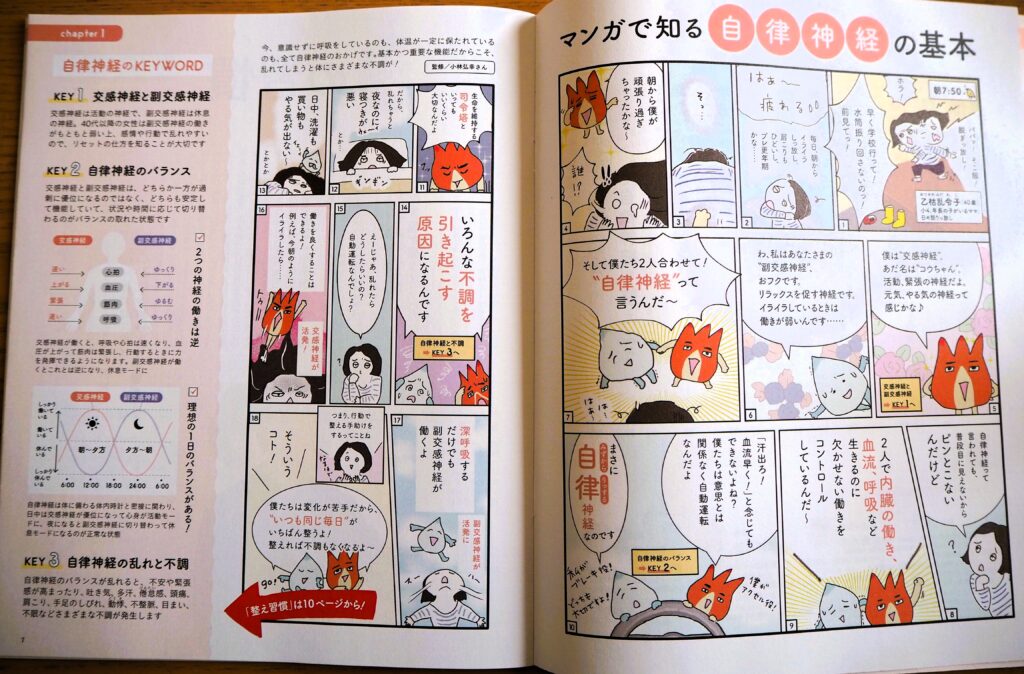 マンガで知る自律神経の基本
朝7:50
ホラ!
パパーッ そこ服!
脱ぎっ放し!
早く学校行って!
水筒振り回さないのっ!
前見てっ!
乙枯乱令子(40歳)
1
はぁ〜
疲れる
毎日、朝から
イライラ
しっ放し
肩こりも
ひどいし、
プレ更年期
かしら…
2
そっ…
3
朝から僕が
頑張り過ぎ
ちゃったかな〜
誰!?
4
僕は“交感神経”。
あだ名は“コウちゃん”。
活動、緊張の神経だよ。
元気、やる気の神経って
感じかな♪
交感神経と
副交感神経
➡KEY 1へ
5
わ、私はあなたさまの
“副交感神経”、
おフクです。
リラックスを促す神経です。
イライラしているときは
働きが弱いんです……
6
そして僕たち2人合わせて!
“自律神経”って
言うんだ〜
はぁー
はぁ!
7
自律神経って
言われても、
普段目に見えないから
ピンとこない
んだけど
8
2人で内臓の働き、
血流、呼吸など
生きるのに
欠かせない働きを
コントロール
しているんだ〜
9
「汗出ろ!
血流早く!」と念じても
できないよね?
僕たちは意思とは
関係なく自動運転
なんだよ
まさに
自律神経なのです
自律神経のバランス
➡KEY 2へ
僕が
アクセル役!
私が
ブレーキ役!
どっちも
大切ですよ!
10
生命を維持する
司令塔と
いっても
いいくらい
大切なんだよ
11
だから、
乱れちゃうと
夜なのに
寝つきが
悪い、
ギンギン
12
日中、洗濯も
買い物も
やる気が出ない…
とかとか
とかとか
13
14
いろんな不調を
引き起こす
原因になるんです
自律神経と不調
➡KEY 3へ
15
えーじゃあ、乱れたら
どうしたらいいの?
自動運転なんでしょ?
16
働きを良くすることは
できるよ!
例えば、今朝のように
イライラしたら……
交感神経が
活発!
17
深呼吸する
だけでも
副交感神経が
働くよ
副交感神経が
活発に
18
つまり、行動で
整える手助けを
するってことね
そういう
コト!
僕たちは変化が苦手だから、
“いつも同じ毎日”が
いちばん整うよ!
整えれば不調もなくなるよ〜
GO!
「整え習慣」は10ページから!
chapter 1
今、意識せずに呼吸をしているのも、体温が一定に保たれている
のも、全て自律神経のおかげです。基本かつ重要な機能だからこそ、
乱れてしまうと体にさまざまな不調が!
監修/小林弘幸さん
自律神経のKEYWORD
KEY 1 交感神経と副交感神経
交感神経は活動の神経で、副交感神経は休息
の神経。40代以降の女性は副交感神経の働き
がもともと弱い上、感情や行動で乱れやすい
ので、リセットの仕方を知ることが大切です
KEY 2 自律神経のバランス
交感神経と副交感神経は、どちらか一方が過
剰に優位になるのではなく、どちらも安定し
て機能していて、状況や時間に応じて切り替
わるのがバランスの取れた状態です
2つの神経の働きは逆
交感神経
副交感神経
速い 心拍 ゆっくり
上がる 血圧 下がる
緊張 筋肉 ゆるむ
速い 呼吸 ゆっくり
交感神経が働くと、呼吸や心拍は速くなり、血
圧が上がって筋肉は緊張し、行動するときに力
を発揮できるようになります。副交感神経が働
くとこれとは逆になり、休息モードに
理想の1日のバランスがある!
交感神経
副交感神経
しっかり
働いて
いる
働いて
いる
休んで
いる
しっかり
休んで
いる
朝〜夕方
夕方〜朝
6:00 12:00 18:00 24:00 6:00
自律神経は体に備わる体内時計と密接に関わり、
日中は交感神経が優位になって心身が活動モー
ドに、夜になると副交感神経に切り替わって休
息モードになるのが正常な状態
KEY 3 自律神経の乱れと不調
自律神経のバランスが乱れると、不安や緊張
感が高まったり、吐き気、多汗、倦怠感、頭痛、
肩こり、手足のしびれ、動悸、不整脈、目まい、
不眠などさまざまな不調が発生します
7